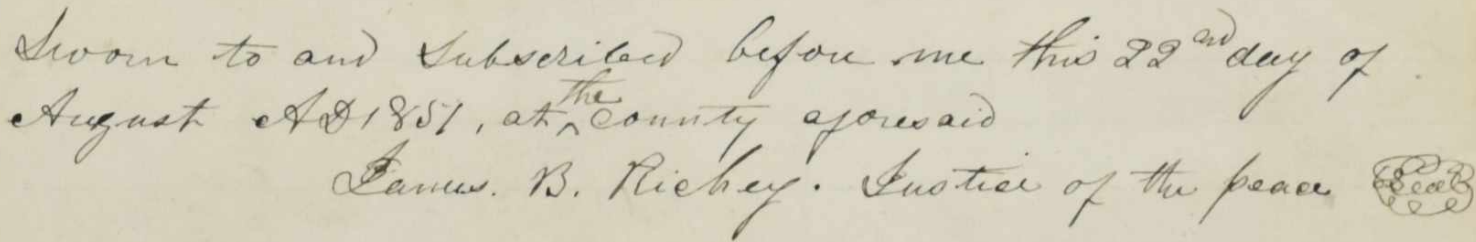 Sworn to and Subscribed before me this 22nd day of
August AD 1851, at the County aforesaid
James. B. Richey. Justice of the peace Seal